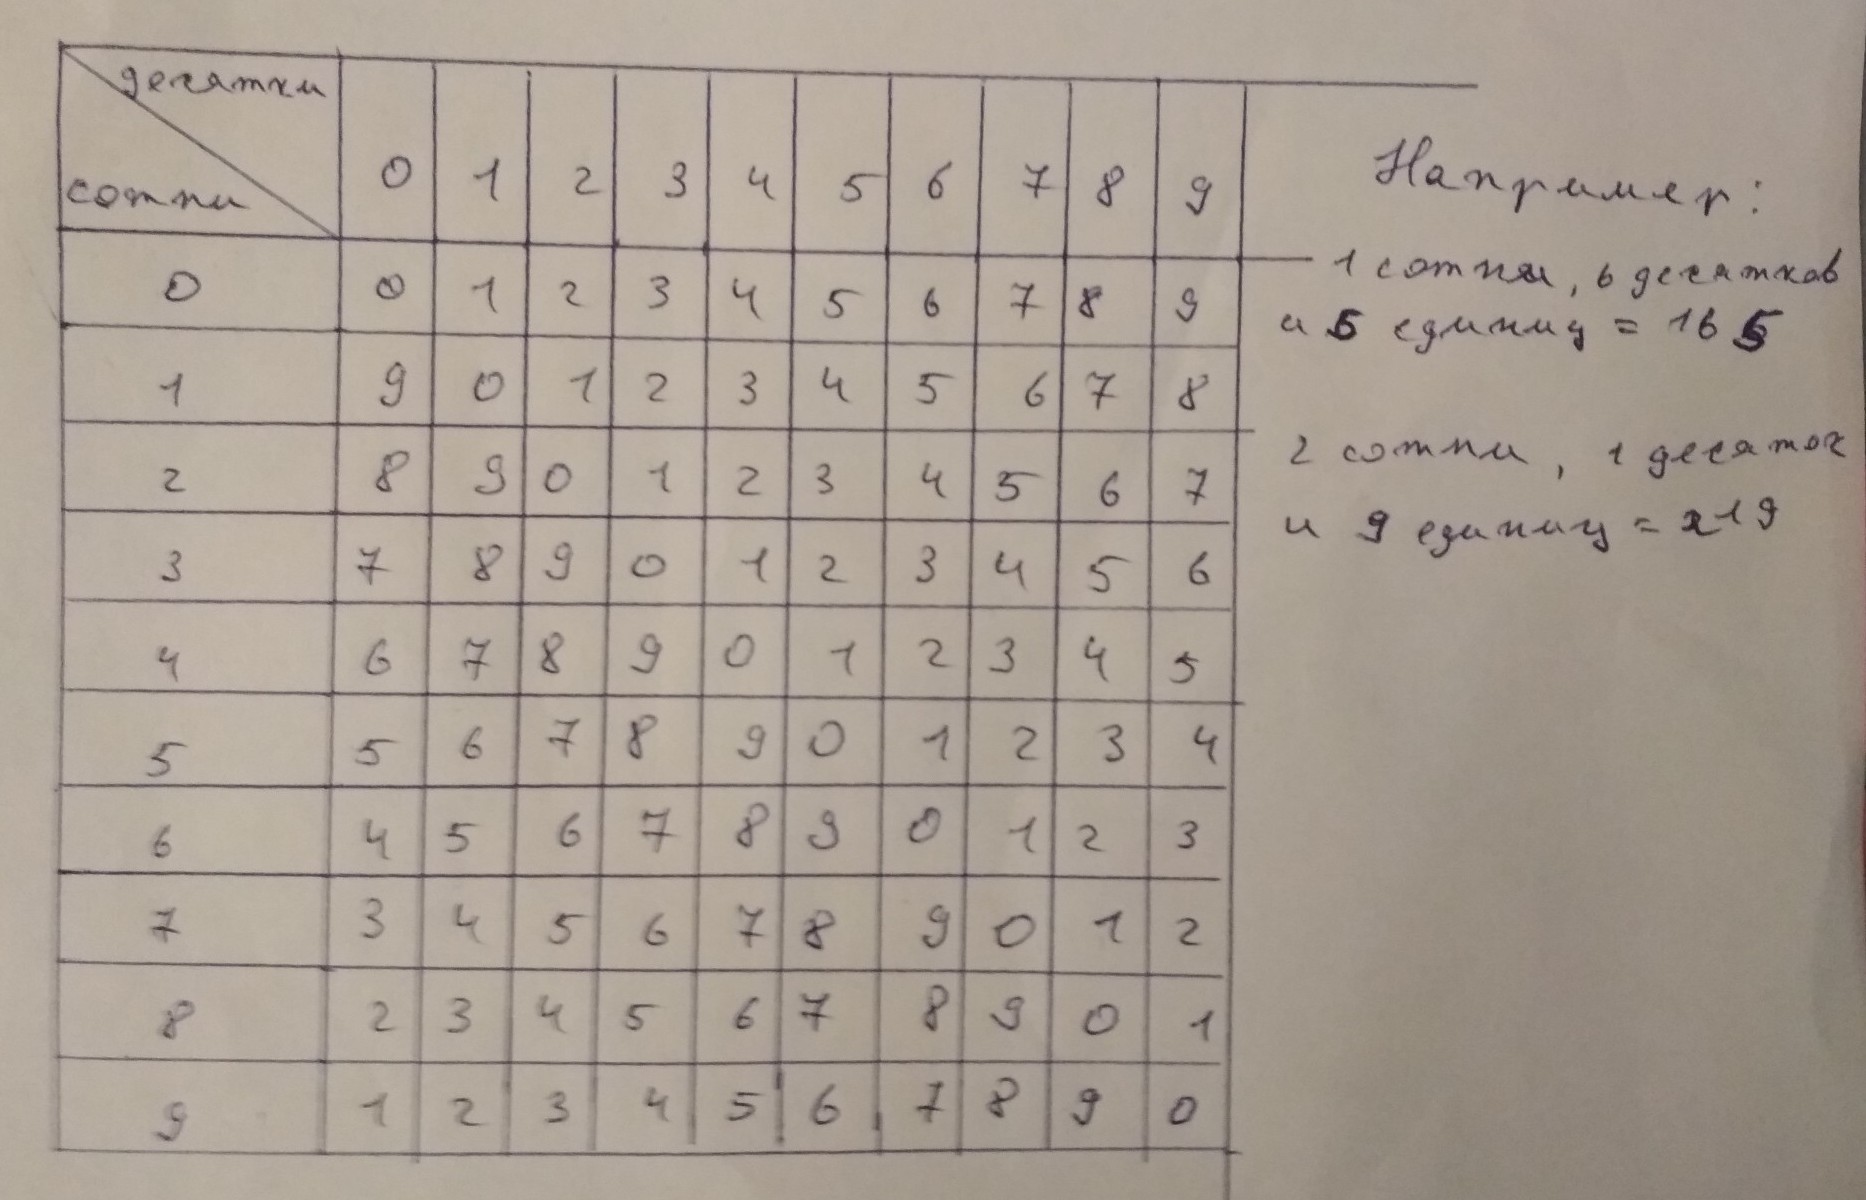 десятки
сотни
0 1 2 3 4 5 6 7 8 9
0 0 1 2 3 4 5 6 7 8 9
1 9 0 1 2 3 4 5 6 7 8
2 8 9 0 1 2 3 4 5 6 7
3 7 8 9 0 1 2 3 4 5 6
4 6 7 8 9 0 1 2 3 4 5
5 5 6 7 8 9 0 1 2 3 4
6 4 5 6 7 8 9 0 1 2 3
7 3 4 5 6 7 8 9 0 1 2
8 2 3 4 5 6 7 8 9 0 1
9 1 2 3 4 5 6 7 8 9 0
Например:
1 сотня, 6 десятков
и 5 единиц = 165
2 сотни, 1 десяток
и 9 единиц = 219